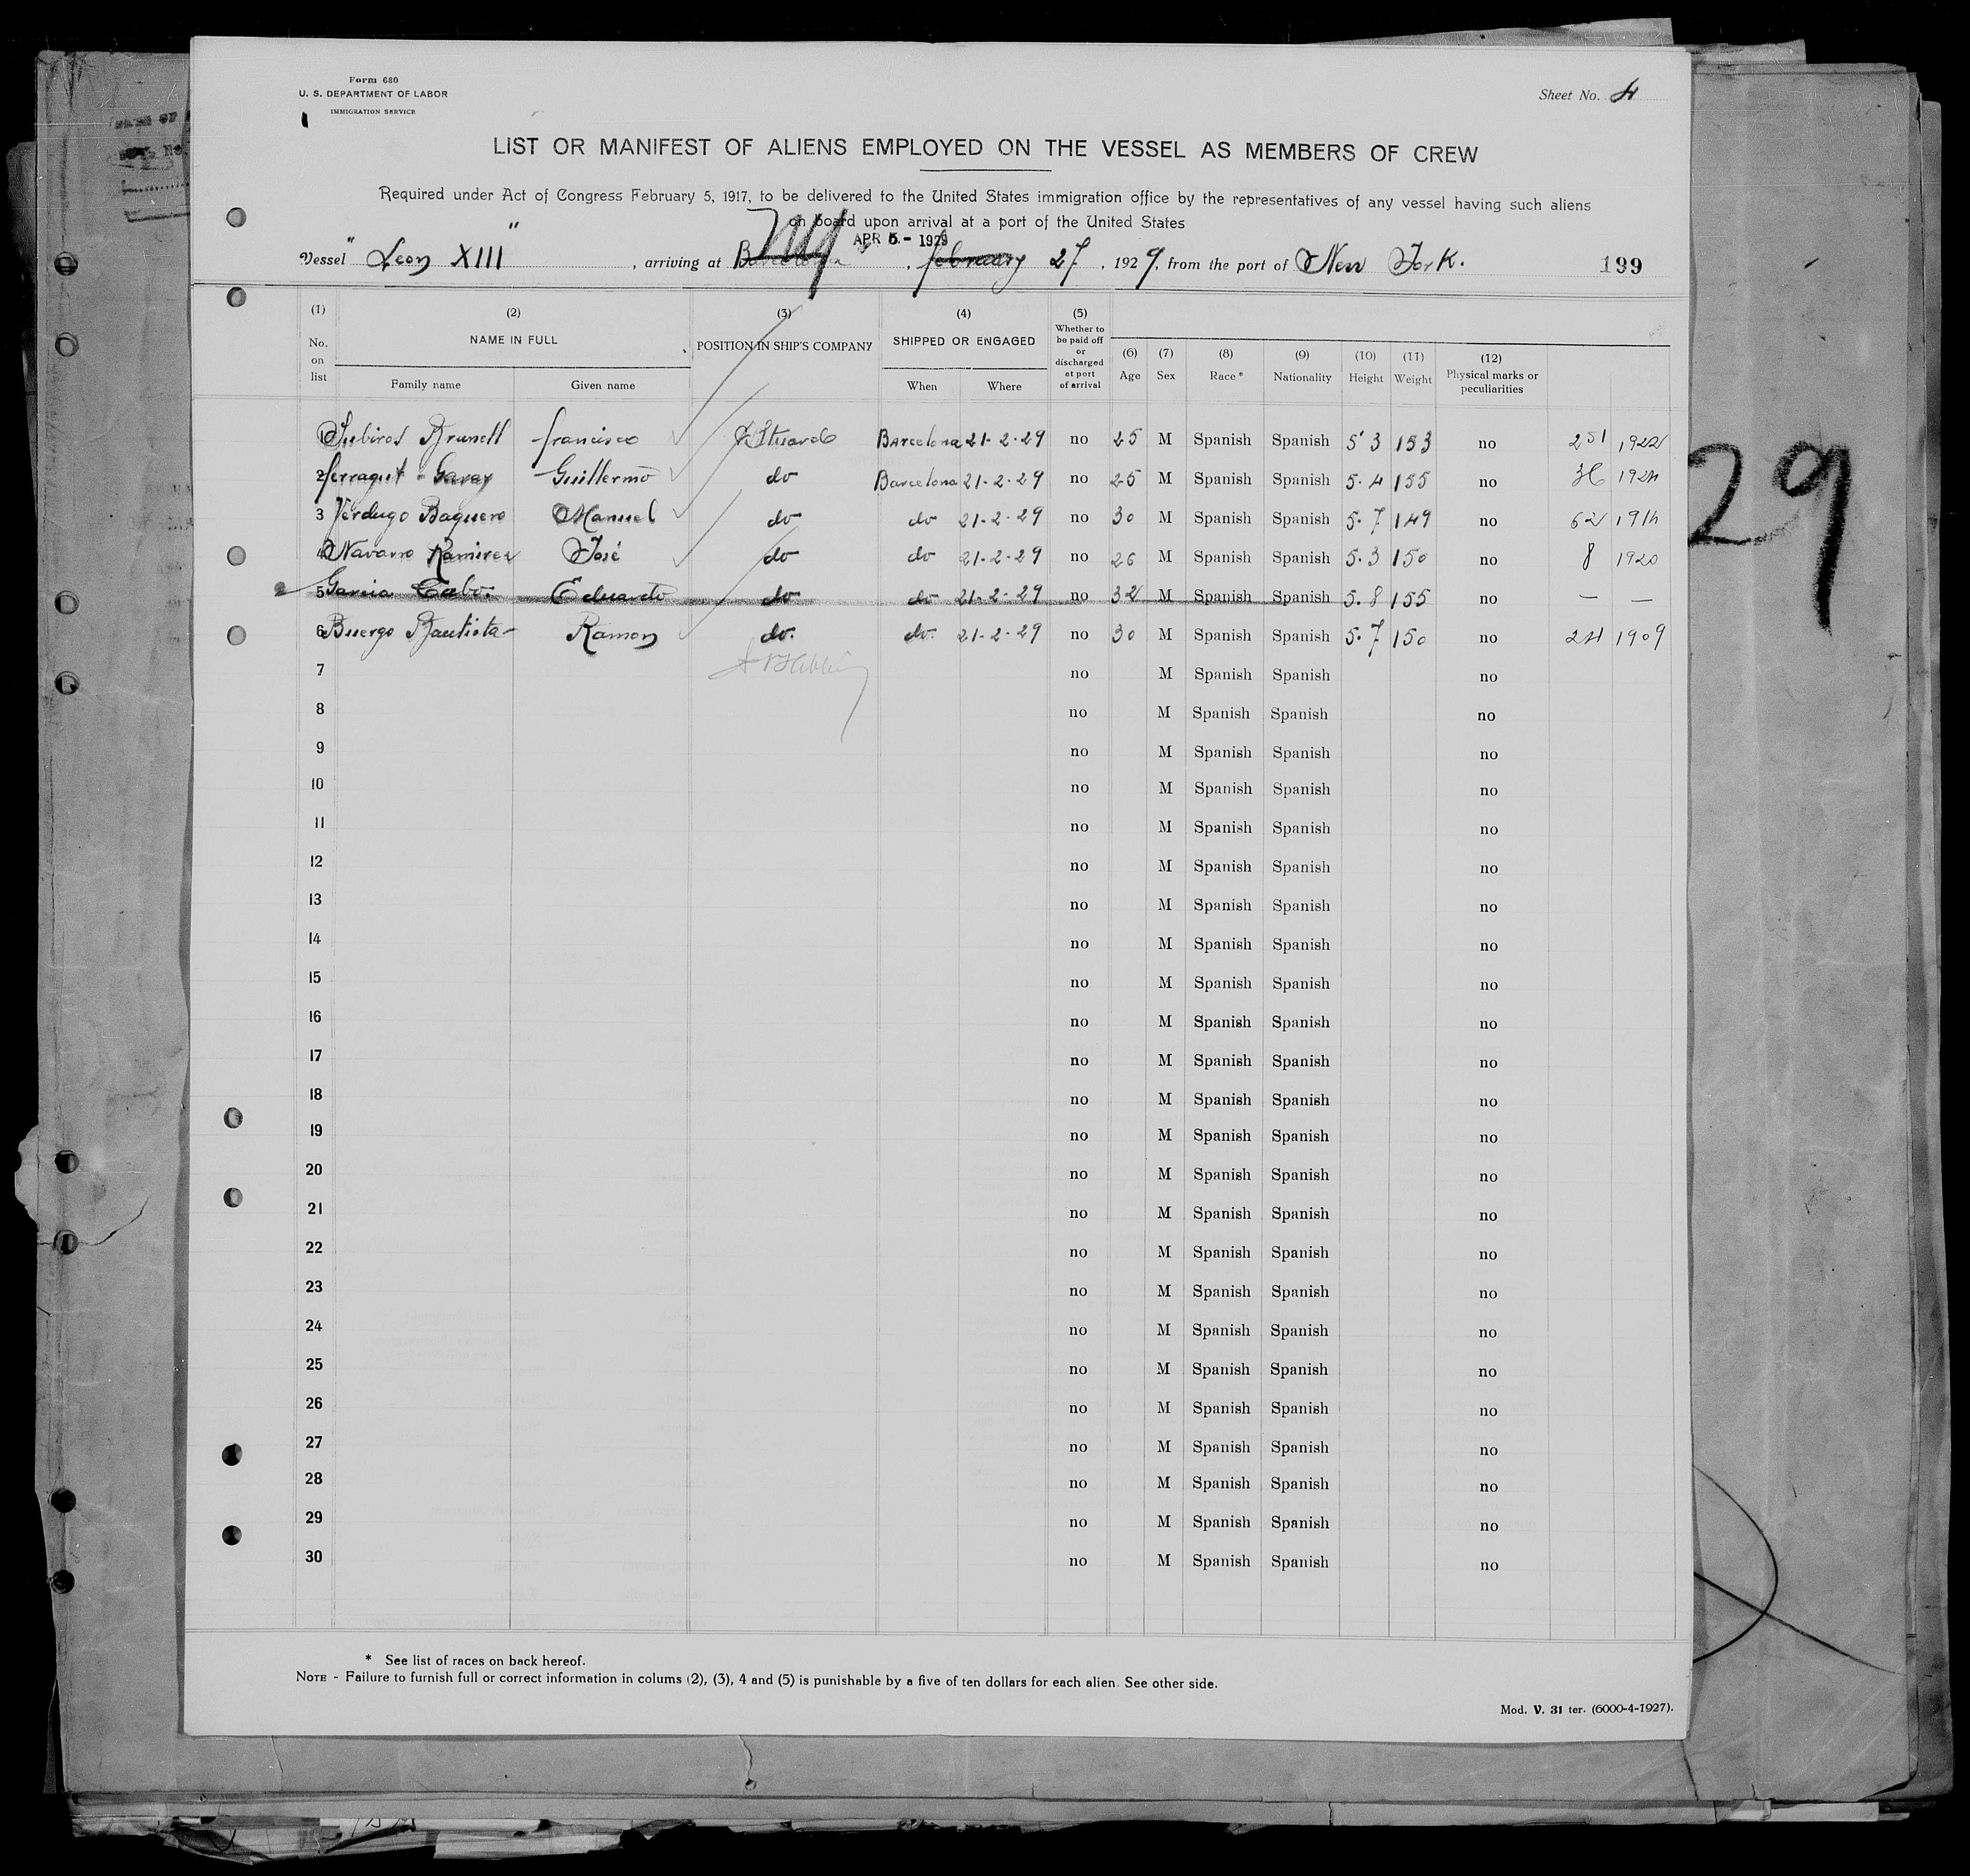 Form 680
U. S. DEPARTMENT OF LABOR
IMMIGRATION SERVICE
Sheet No. 4
LIST OR MANIFEST OF ALIENS EMPLOYED ON THE VESSEL AS MEMBERS OF CREW
Required under Act of Congress February 5, 1917, to be delivered to the United States immigration office by the representatives of any vessel having such aliens
on board upon arrival at a port of the United States
APR 5 - 1929
Vessel "Leon XIII", arriving at Barcelona, february 27, 1929, from the port of New York.
199
(1) (2) (3) (4) (5)
No. on list NAME IN FULL POSITION IN SHIP'S COMPANY SHIPPED OR ENGAGED Whether to be paid off or discharged at port of arrival (6) Age (7) Sex (8) Race * (9) Nationality (10) Height (11) Weight (12) Physical marks or peculiarities
Family name Given name When Where
1 Subiros Brunell francisco Barcelona 21-2-29 no 25 M Spanish Spanish 5 3 153 no 251 1922
2 ferragut - Garay Guillermo do Barcelona 21-2-29 no 25 M Spanish Spanish 5.4 155 no 36 1924
3 Verdugo Baquero Manuel do do 21-2-29 no 30 M Spanish Spanish 5.7 149 no 62 1914
4 Navarro Ramirez José do do 21-2-29 no 26 M Spanish Spanish 5.3 150 no 8 1920
5 Garcia Cabo. Eduardo do do 21-2-29 no 32 M Spanish Spanish 5.8 155 no — —
6 Buergo Bautista- Ramon do. do. 21-2-29 no 30 M Spanish Spanish 5.7 150 no 24 1909
7 no M Spanish Spanish no
8 no M Spanish Spanish no
9 no M Spanish Spanish no
10 no M Spanish Spanish no
11 no M Spanish Spanish no
12 no M Spanish Spanish no
13 no M Spanish Spanish no
14 no M Spanish Spanish no
15 no M Spanish Spanish no
16 no M Spanish Spanish no
17 no M Spanish Spanish no
18 no M Spanish Spanish no
19 no M Spanish Spanish no
20 no M Spanish Spanish no
21 no M Spanish Spanish no
22 no M Spanish Spanish no
23 no M Spanish Spanish no
24 no M Spanish Spanish no
25 no M Spanish Spanish no
26 no M Spanish Spanish no
27 no M Spanish Spanish no
28 no M Spanish Spanish no
29 no M Spanish Spanish no
30 no M Spanish Spanish no
* See list of races on back hereof.
NOTE - Failure to furnish full or correct information in colums (2), (3), 4 and (5) is punishable by a five of ten dollars for each alien. See other side.
Mod. V. 31 ter. (6000-4-1927).
29